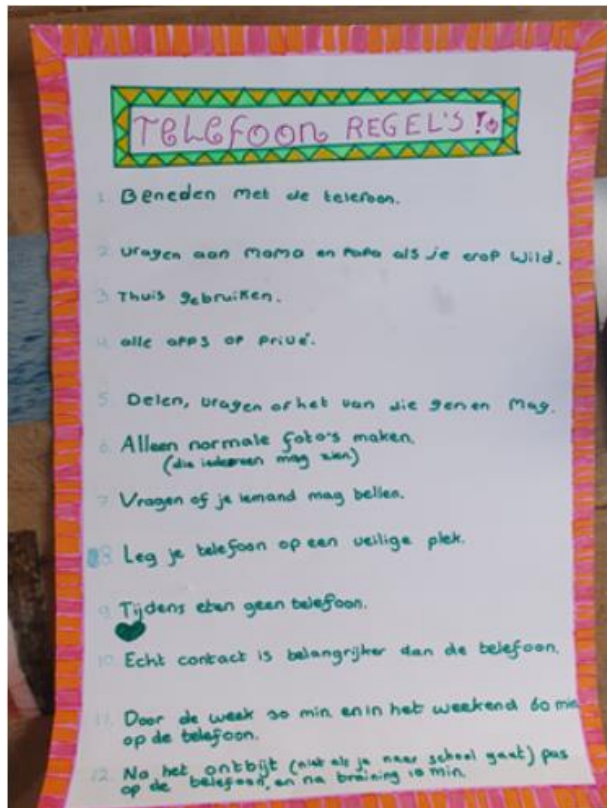 TELEFOON REGEL'S !
1. Beneden met de telefoon.
2. vragen aan mama en papa als je erop wild.
3. Thuis gebruiken.
4. alle apps op privé.
5. Delen, vragen of het van die genen mag.
6. Alleen normale foto's maken.
(die iedereen mag zien)
7. Vragen of je iemand mag bellen.
8. Leg je telefoon op een veilige plek.
9. Tijdens eten geen telefoon.
10. Echt contact is belangrijker dan de telefoon.
11. Door de week 30 min en in het weekend 60 min
op de telefoon.
12. Na het ontbijt (niet als je naar school gaat) pas
op de telefoon, en na training 10 min.